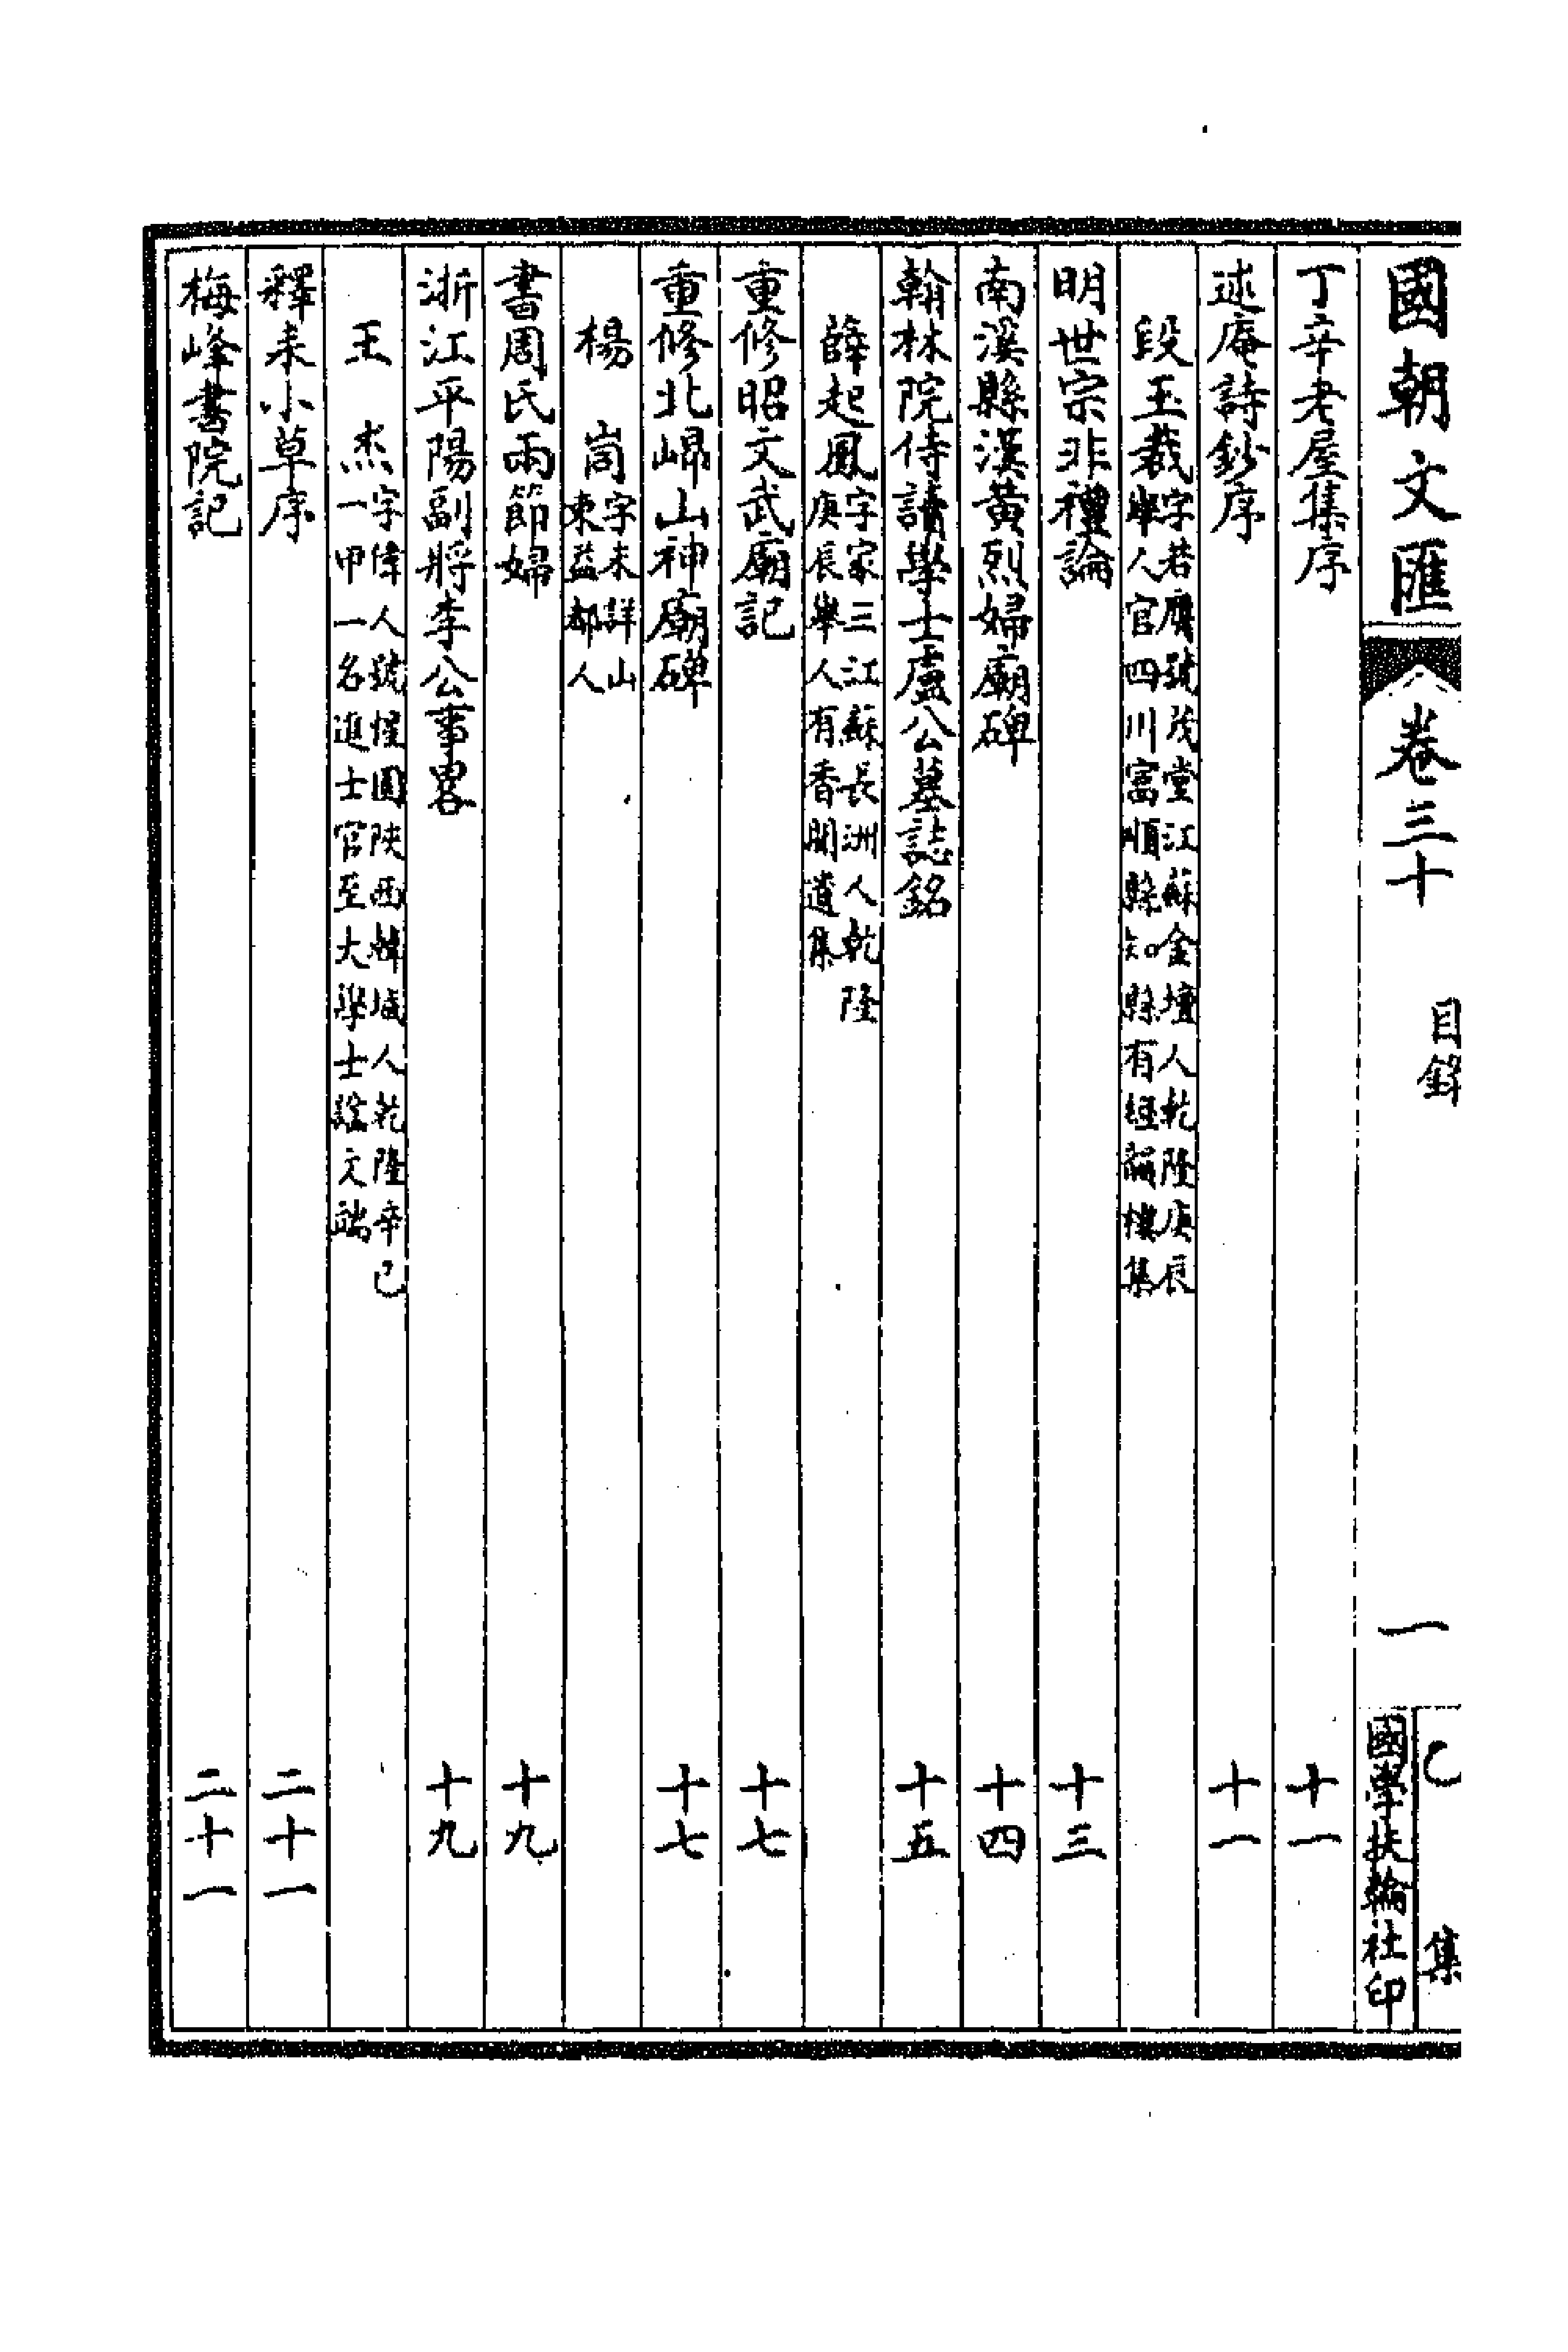 國朝文匯 卷三十 目錄 一 乙集 國學扶輪社印
丁辛老屋集序 十一
述庵詩鈔序 十一
段玉裁 字若膺號茂堂江蘇金壇人乾隆庚辰
舉人官四川富順縣知縣有經韻樓集
明世宗非禮論 十三
南溪縣漢黃烈婦廟碑 十四
翰林院侍讀學士盧公墓誌銘 十五
薛起鳳 字家三江蘇長洲人乾隆
庚辰舉人有香聞遺集
重修昭文武廟記 十七
重修北嶧山神廟碑 十七
楊 峒 字未詳山
東益都人
書周氏兩節婦 十九
浙江平陽副將李公事畧 十九
王 杰 字偉人號惺園陝西韓城人乾隆辛巳
一甲一名進士官至大學士諡文端
釋耒小草序 二十一
梅峰書院記 二十一